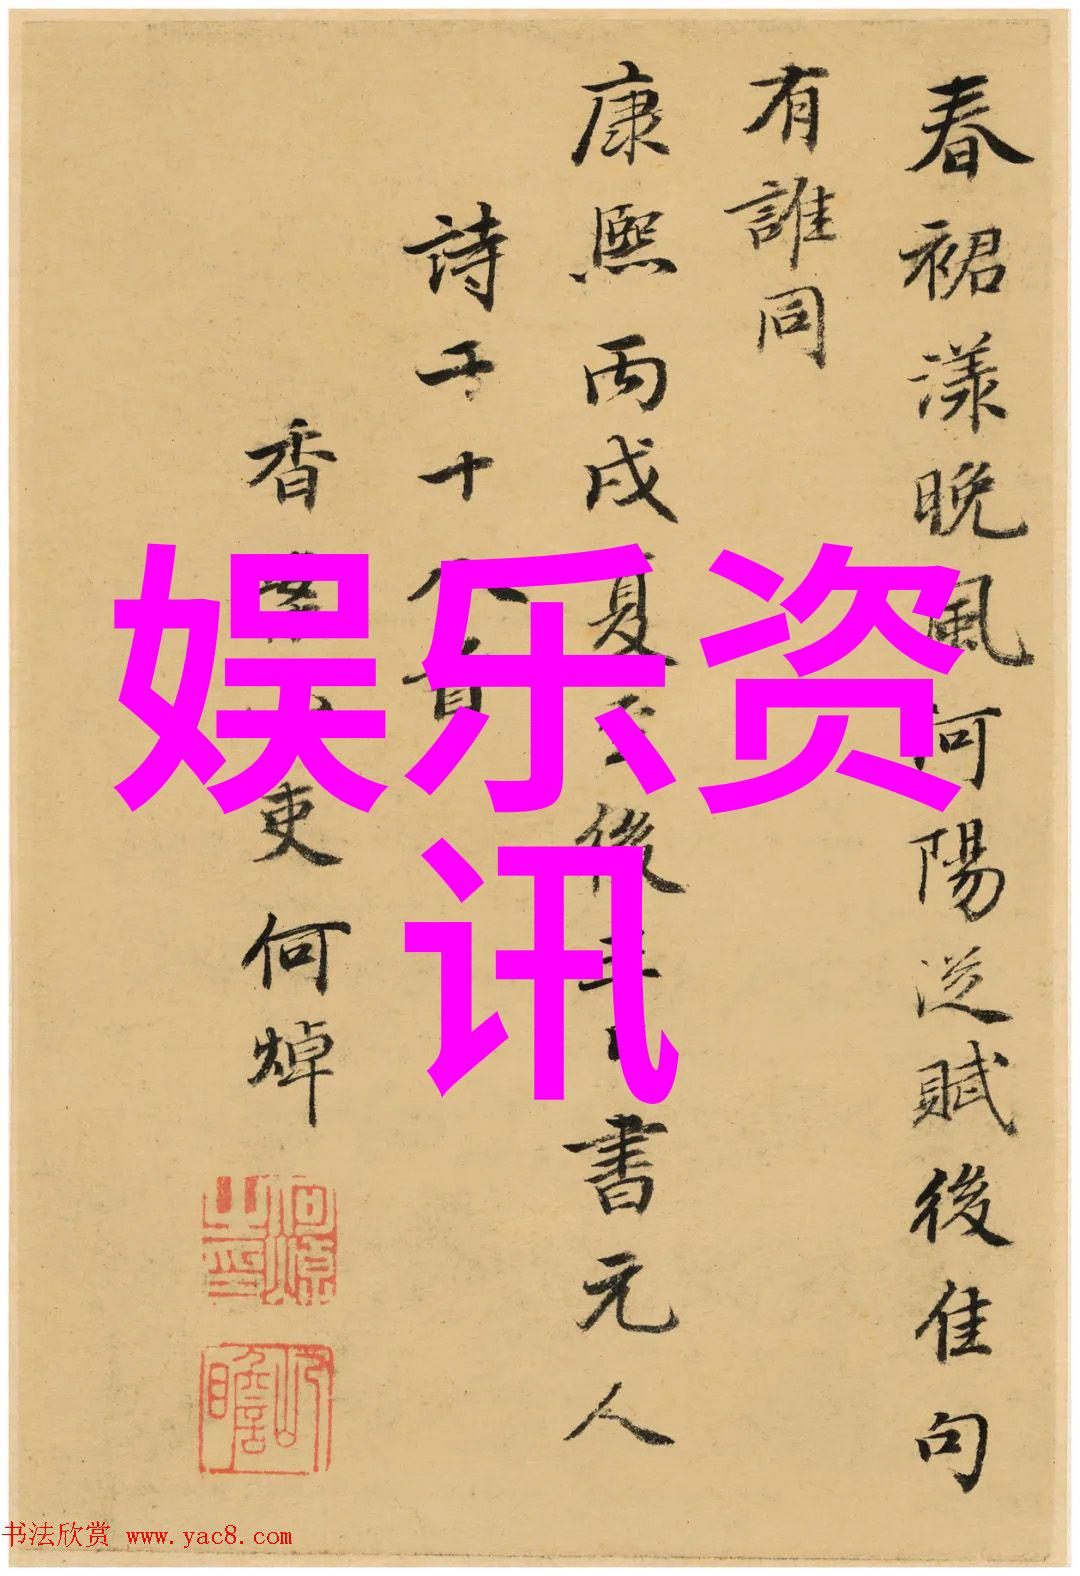 春裙漾晚風何陽從賦後佳句
有誰同
康熙丙戌夏至後三日書元人
詩二十八首
香案小吏何焯
娱乐资
讯
书法欣赏 www.yac8.com